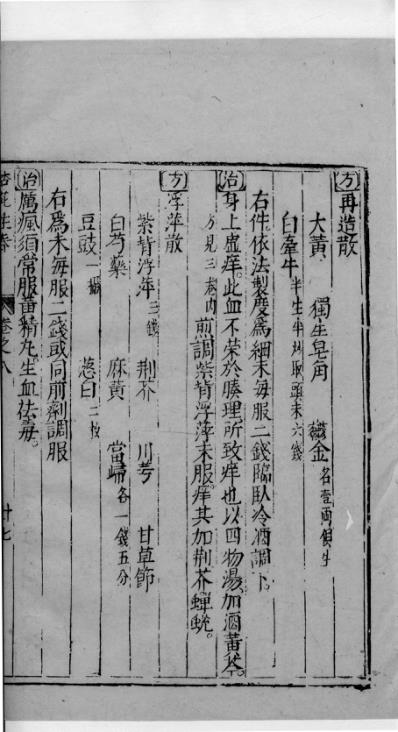 方 再造散
大黃 獨生皂角 鬱金各壹兩
白牽牛半生半炒取頭末六錢
右件依法製度爲細末每服二錢臨臥冷酒調下
治 身上虛痒此血不榮於腠理所致痒也以四物湯加酒黃芩
方見三卷內 煎調紫背浮萍末服痒甚加荆芥蟬蛻
方 浮萍散
紫背浮萍三錢 荆芥 川芎 甘草節
白芍藥 麻黃 當歸各一錢五分
豆豉一撮 葱白二枚
右爲末每服二錢或同前劑調服
治 厲瘋須常服黃精丸生血祛毒
杏苑生春 卷之八 十七